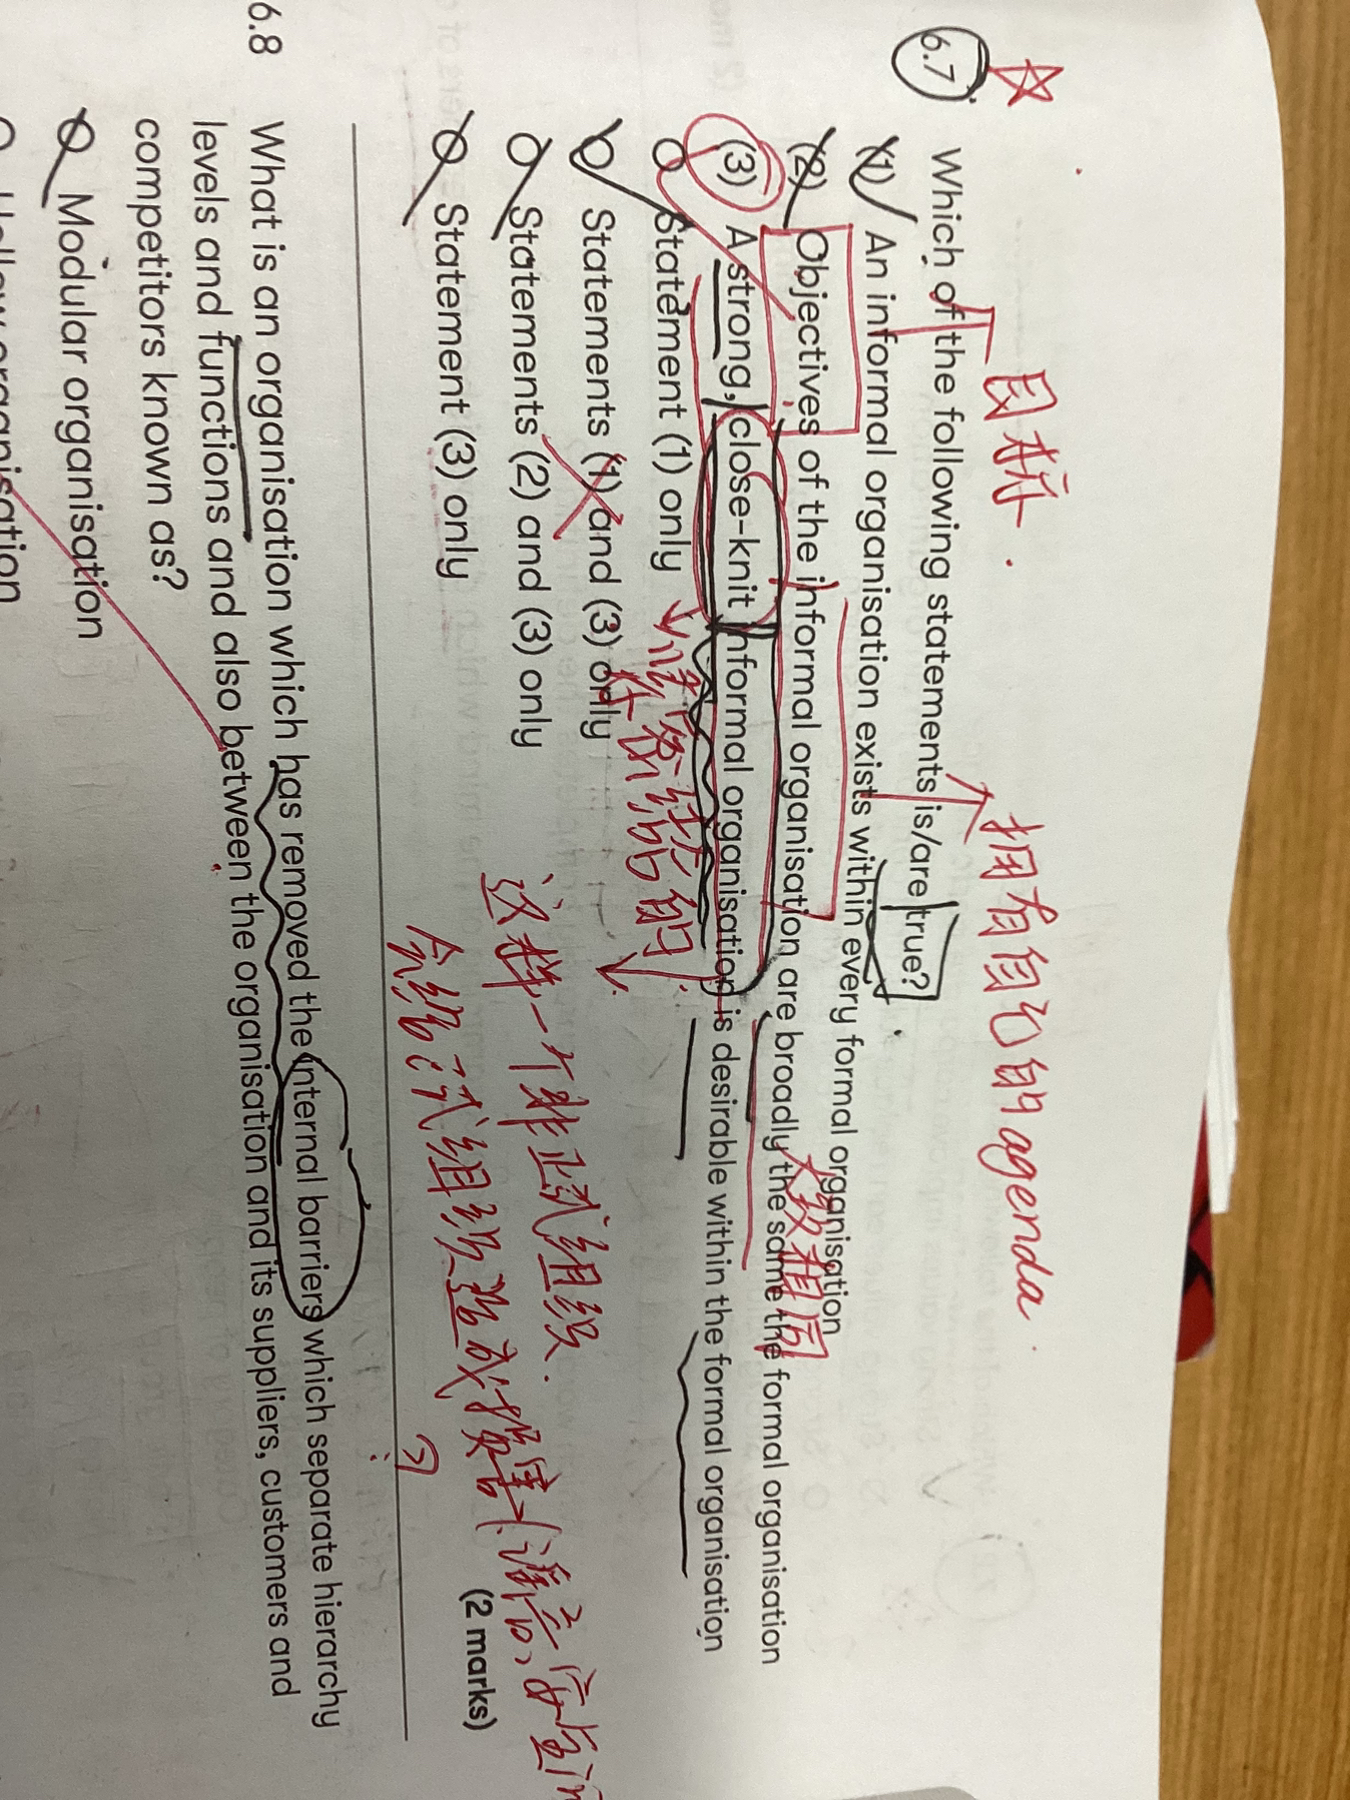 目标
拥有自己的agenda
6.7 Which of the following statements is/are true?
(1) An informal organisation exists within every formal organisation
大致相同
(2) Objectives of the informal organisation are broadly the same the formal organisation
(3) A strong, close-knit informal organisation is desirable within the formal organisation
Statement (1) only
紧密结合的
Statements (1) and (3) only
Statements (2) and (3) only
这样一个非正式组织
Statement (3) only
会给正式组织造成损害
(2 marks)
6.8 What is an organisation which has removed the internal barriers which separate hierarchy
levels and functions and also between the organisation and its suppliers, customers and
competitors known as?
Modular organisation